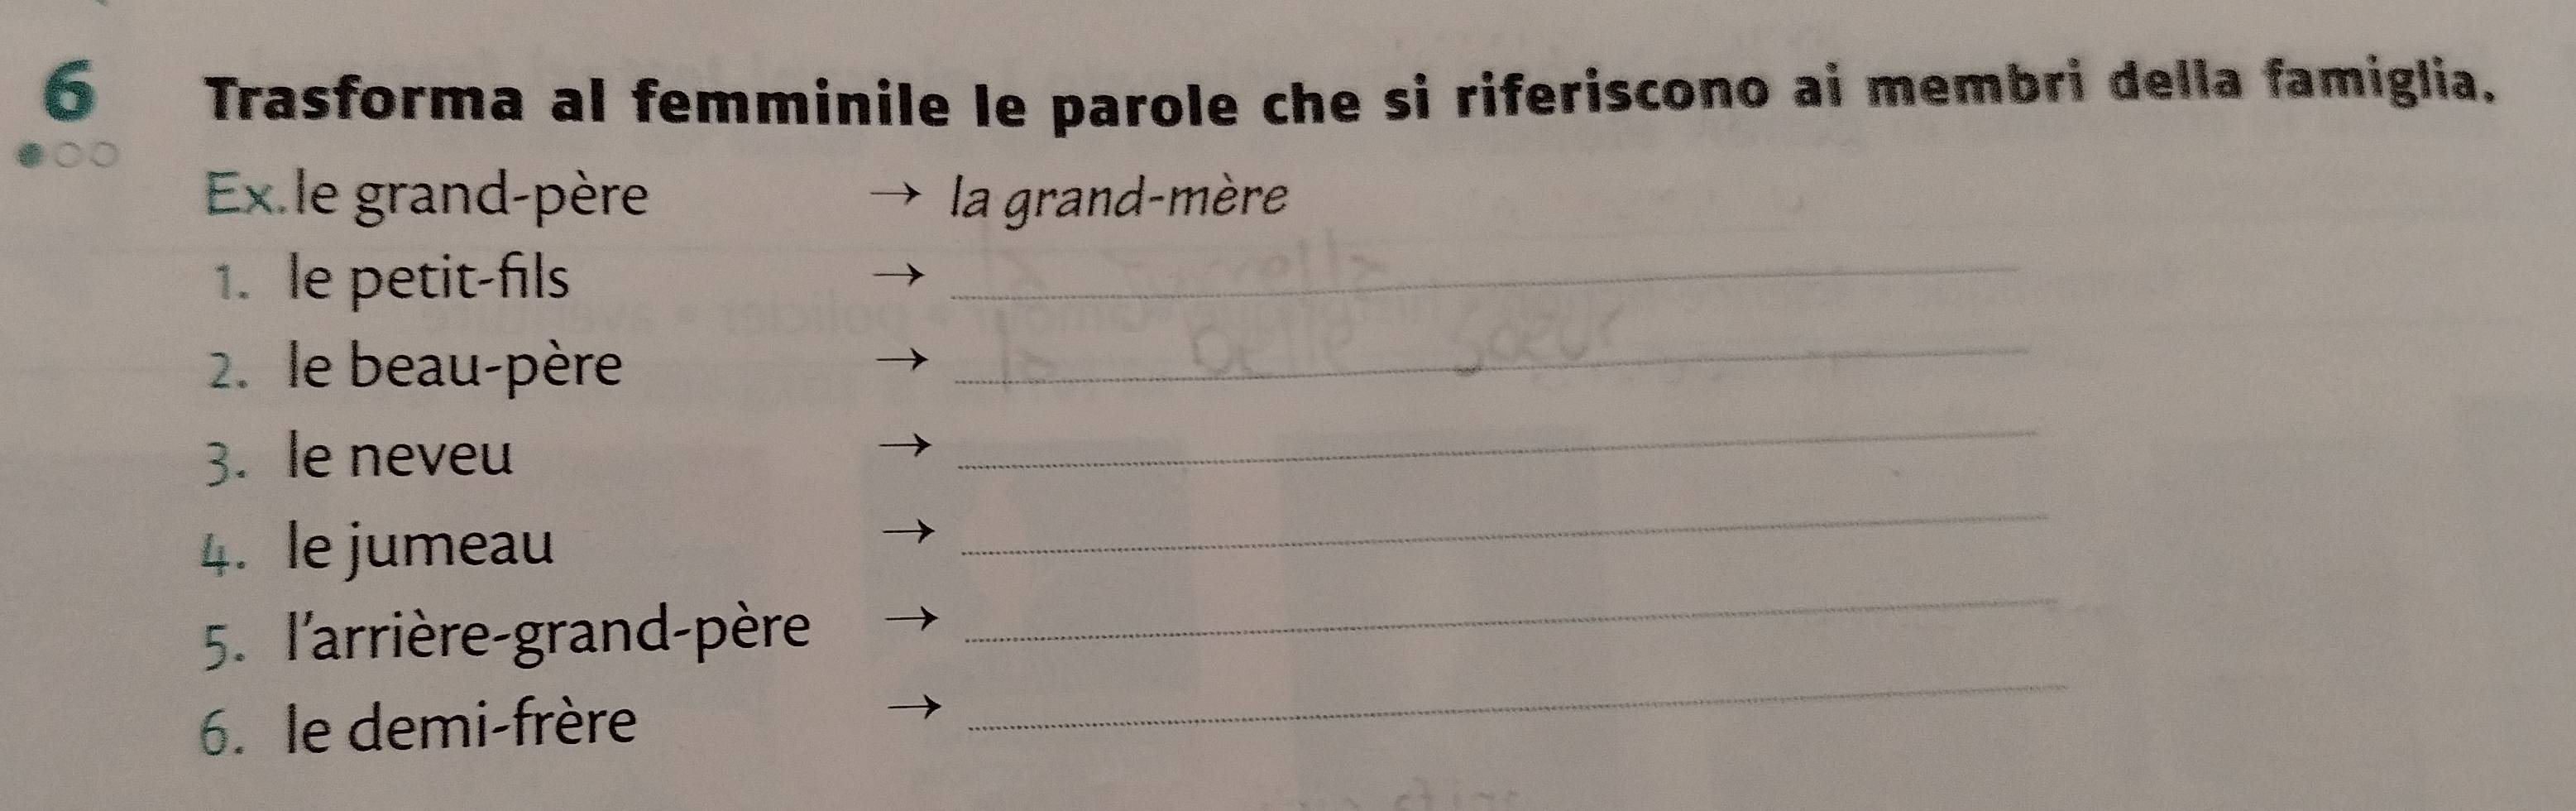 6 Trasforma al femminile le parole che si riferiscono ai membri della famiglia.
Ex. le grand-père → la grand-mère
1. le petit-fils →
2. le beau-père → la belle soeur
3. le neveu →
4. le jumeau →
5. l'arrière-grand-père →
6. le demi-frère →